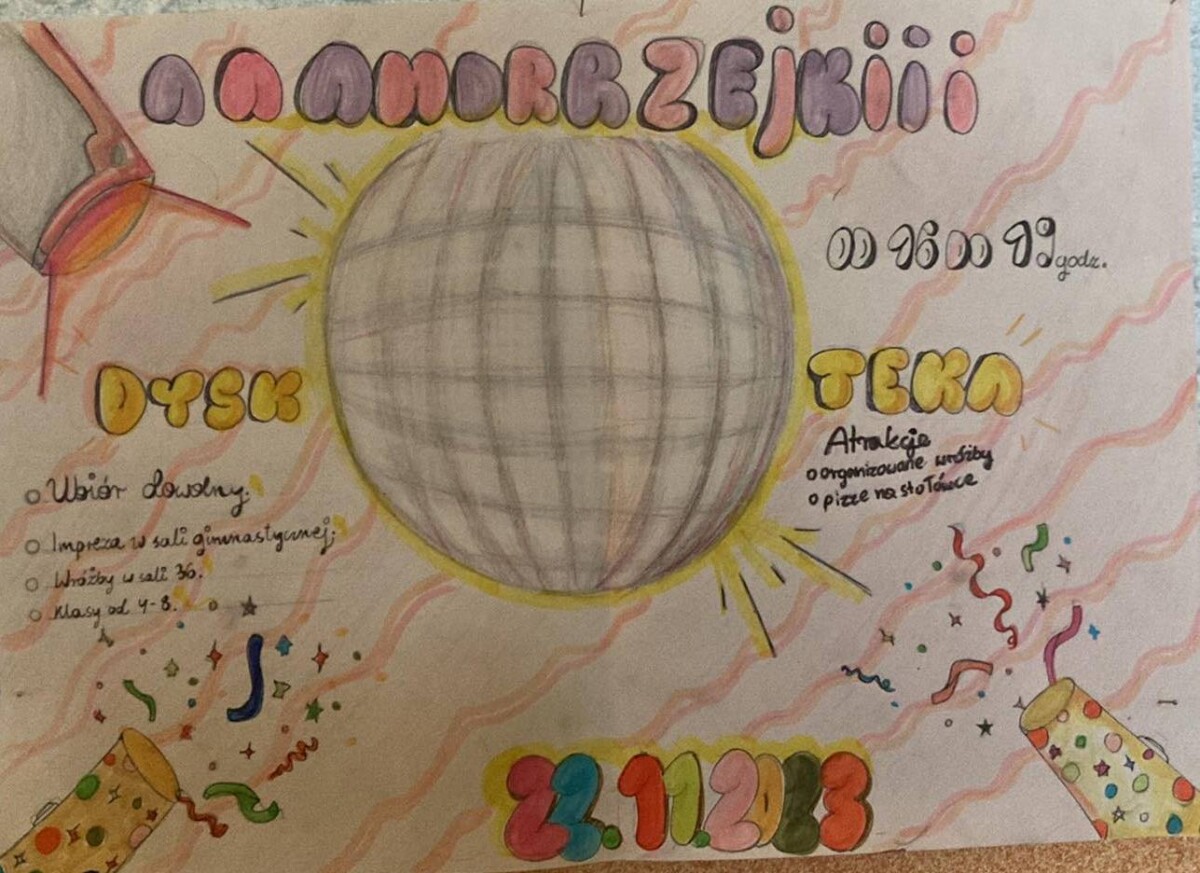 AAANDRRZEjKiii
OD 16 DO 19 godz.
DYSK TEKA
o Ubiór dowolny.
o Impreza w sali gimnastycznej;
o Wróżby w sali 36.
o Klasy od 4-8.
Atrakcje
o organizowane wróżby
o pizze na stołówce
22.11.2023